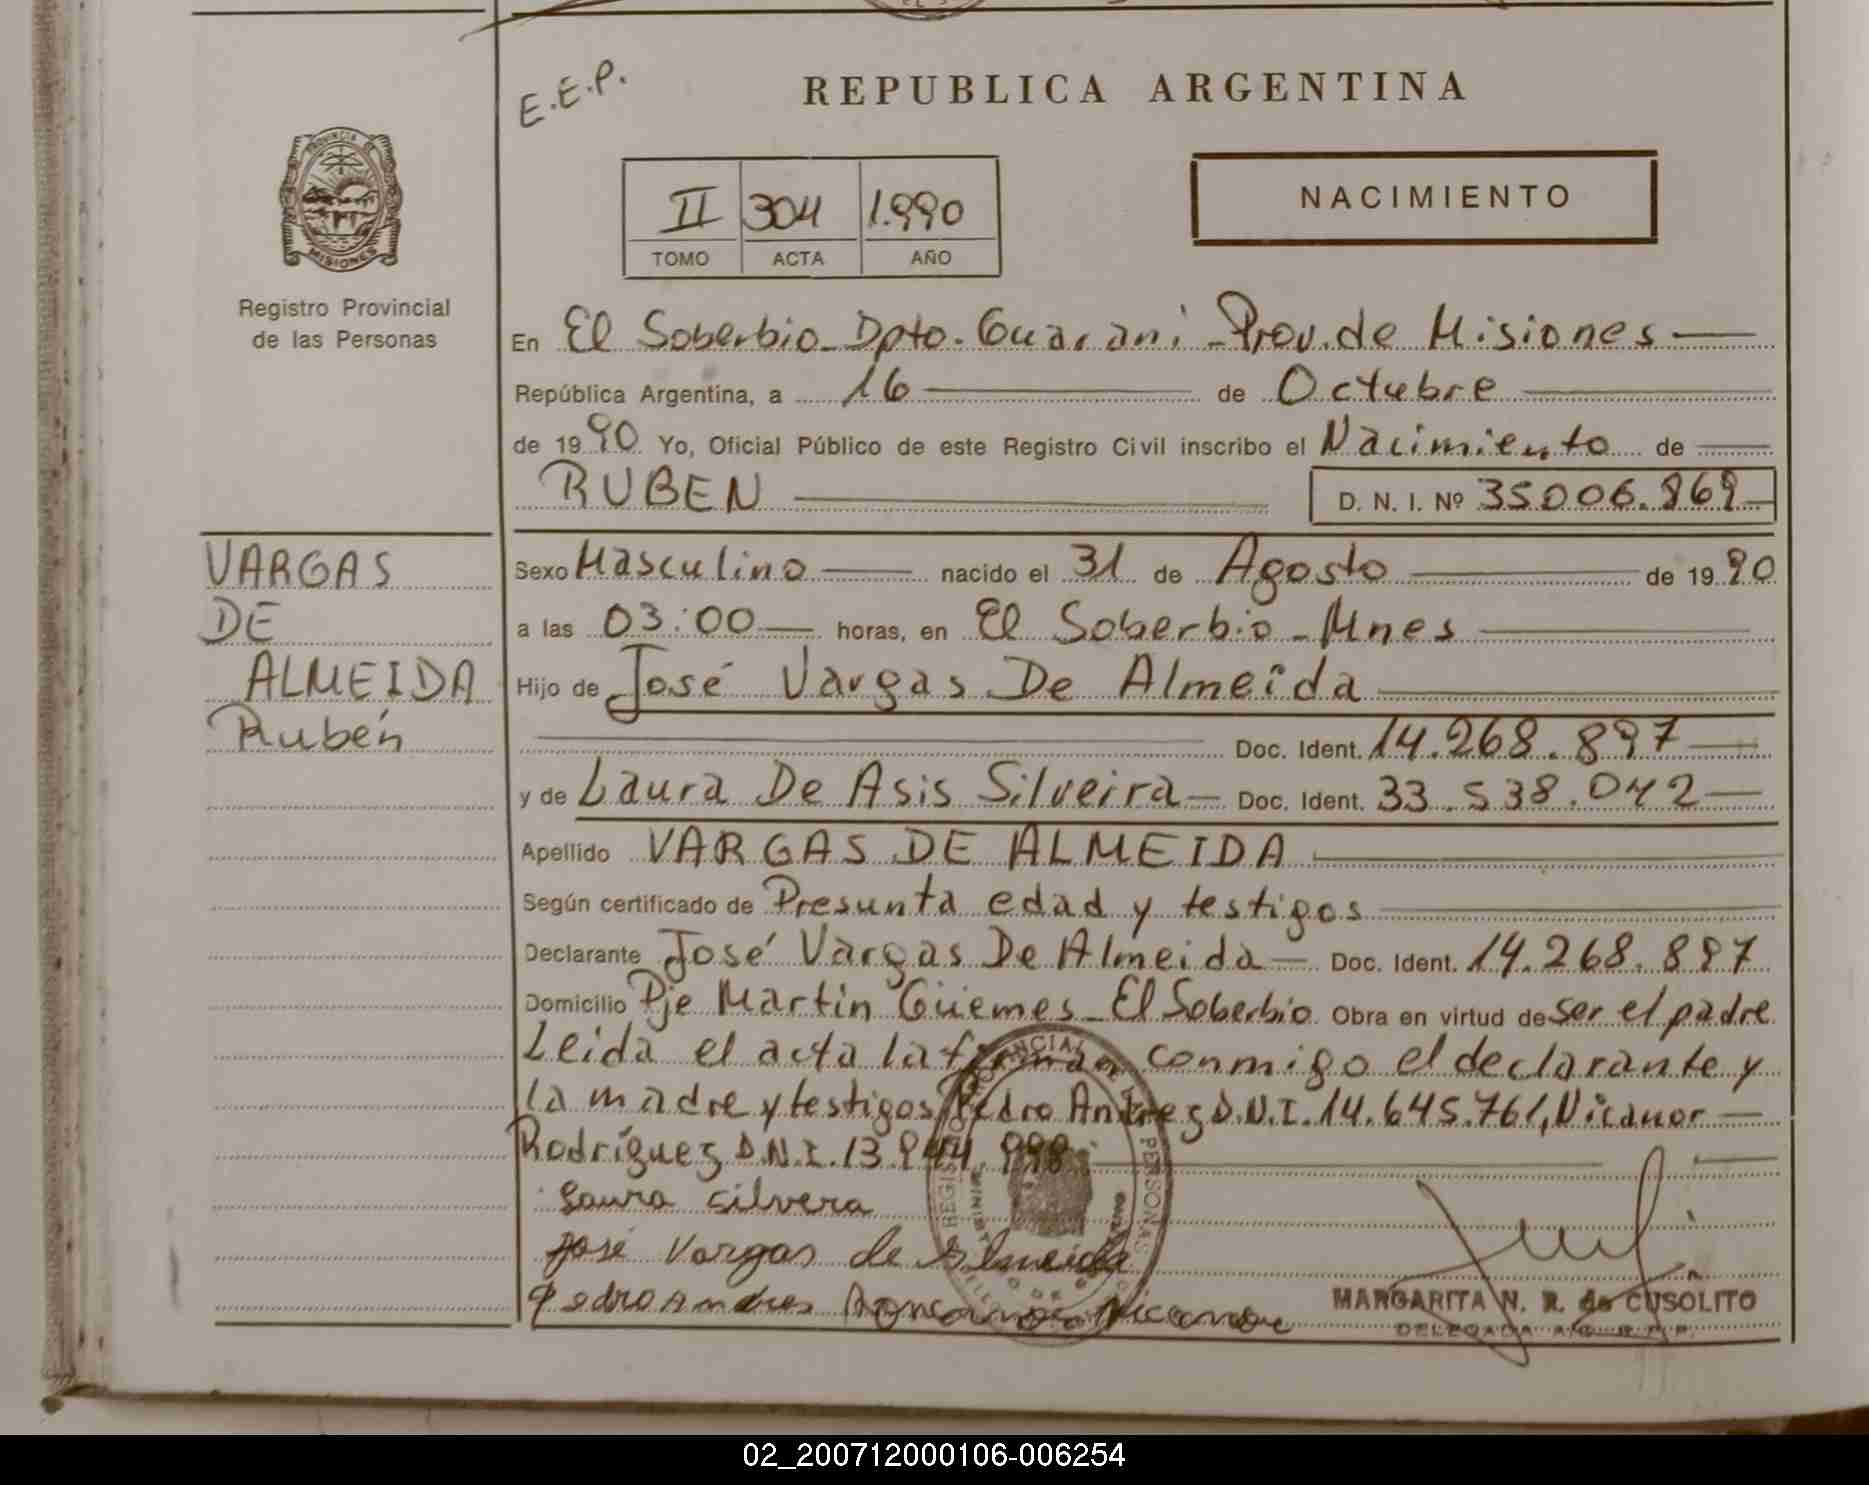 E.E.P.
REPUBLICA ARGENTINA
PROVINCIA DE
MISIONES
II 304 1.990
TOMO ACTA AÑO
NACIMIENTO
Registro Provincial
de las Personas
En El Soberbio - Dpto. Guarani - Prov. de Misiones
República Argentina, a 16 de Octubre
de 1990 Yo, Oficial Público de este Registro Civil inscribo el Nacimiento de
RUBEN D. N. I. Nº 35006.869
VARGAS
DE
ALMEIDA
Rubén
Sexo Masculino nacido el 31 de Agosto de 1990
a las 03:00 horas, en El Soberbio - Mnes
Hijo de José Vargas De Almeida
Doc. Ident. 14.268.897
y de Laura De Asis Silveira Doc. Ident. 33.538.042
Apellido VARGAS DE ALMEIDA
Según certificado de Presunta edad y testigos
Declarante José Vargas De Almeida Doc. Ident. 14.268.897
Domicilio Pje Martin Güemes - El Soberbio Obra en virtud de ser el padre
Leida el acta la firman conmigo el declarante y
la madre y testigos Pedro Andrez D.N.I. 14.645.761, Nicanor
Rodríguez D.N.I. 13.944.998
Laura silvera
José Vargas de Almeida
Pedro Andres Nicanor
MARGARITA N. R. de CUSOLITO
DELEGADA
02_200712000106-006254